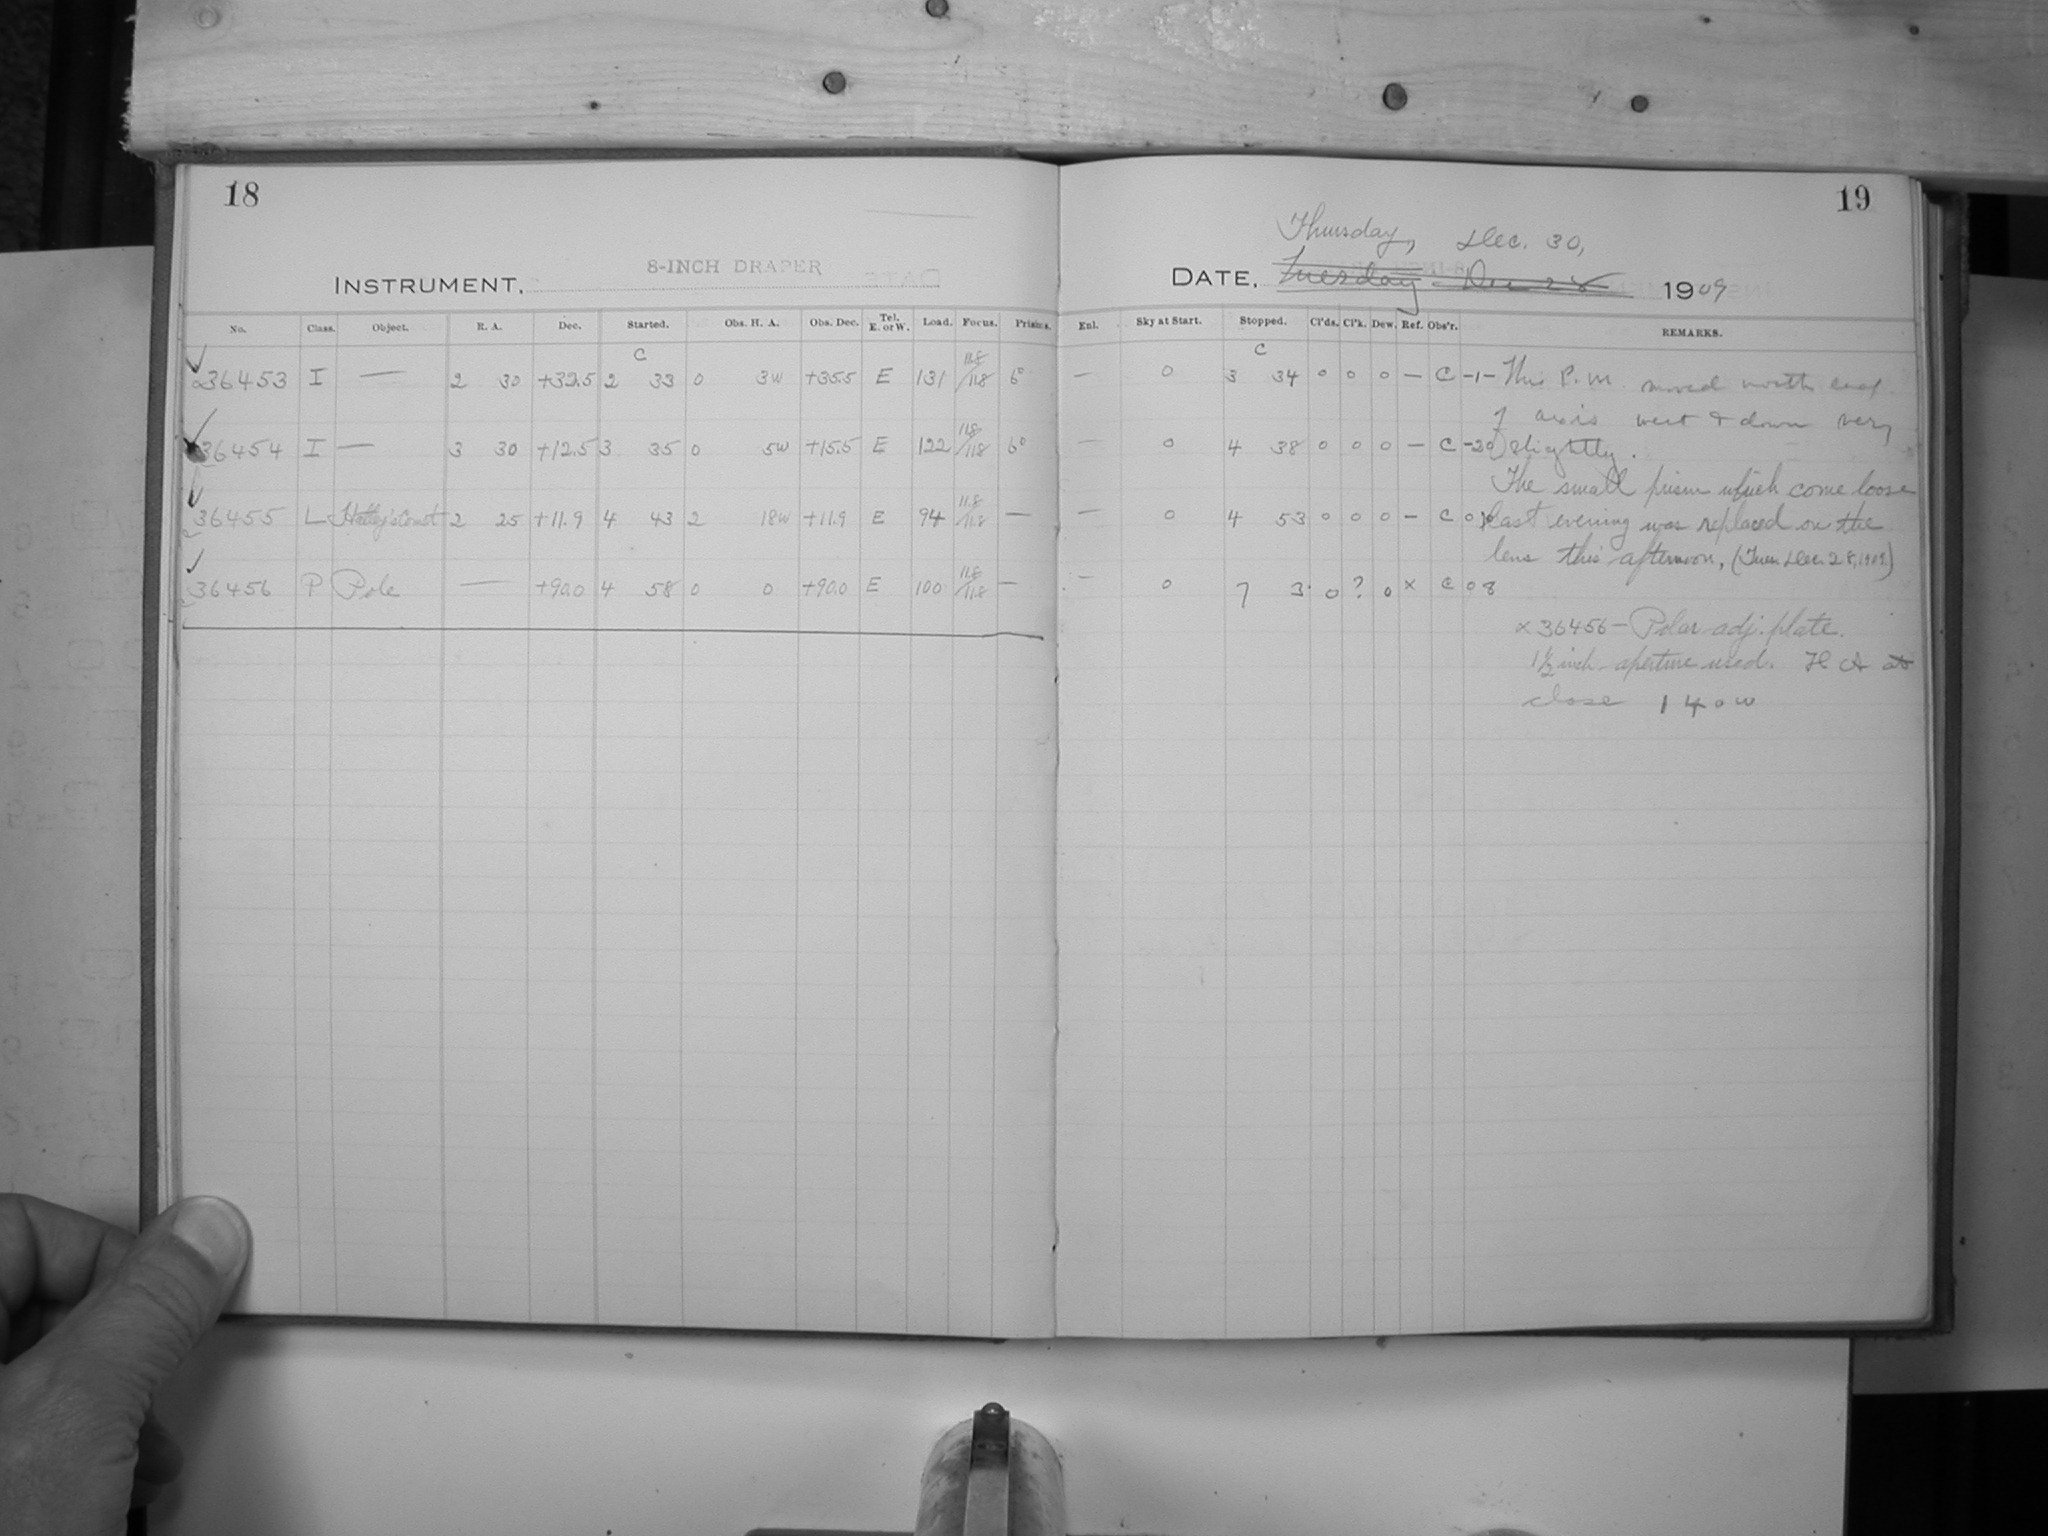 18
8-INCH DRAPER
INSTRUMENT,
No. Class. Object. R. A. Dec. Started. Obs. H. A. Obs. Dec. Tel. E. or W. Load. Focus. Prisms.
C
36453 I — 2 30 +32.5 2 33 0 3W +35.5 E 131 11.8/11.8 6°
36454 I — 3 30 +12.5 3 35 0 5W +15.5 E 122 11.8/11.8 6°
36455 L Halley's Comet 2 25 +11.9 4 43 2 18W +11.9 E 94 11.8/11.8 —
36456 P Pole — +90.0 4 58 0 0 +90.0 E 100 11.8/11.8 —
19
Thursday, Dec. 30,
DATE, Tuesday Dec 28 1909
Enl. Sky at Start. Stopped. Cl'ds. Cl'k. Dew. Ref. Obs'r. REMARKS.
C
— 0 3 34 0 0 0 — C -1- This P.M. moved north end
of axis west & down very
— 0 4 38 0 0 0 — C -20 slightly.
The small prism which come loose
— 0 4 53 0 0 0 — C 0 last evening was replaced on the
lens this afternoon, (Tues. Dec. 28, 1909)
— 0 7 3 0 ? 0 x C 0 8
x 36456 — Polar adj. plate.
1½ inch aperture used. H A at
close 1 40 W